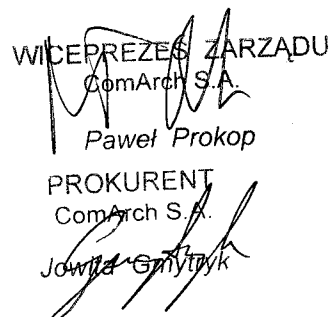 WICEPREZES ZARZĄDU
ComArch S.A.
Paweł Prokop
PROKURENT
ComArch S.A.
Jowita Gmytryk